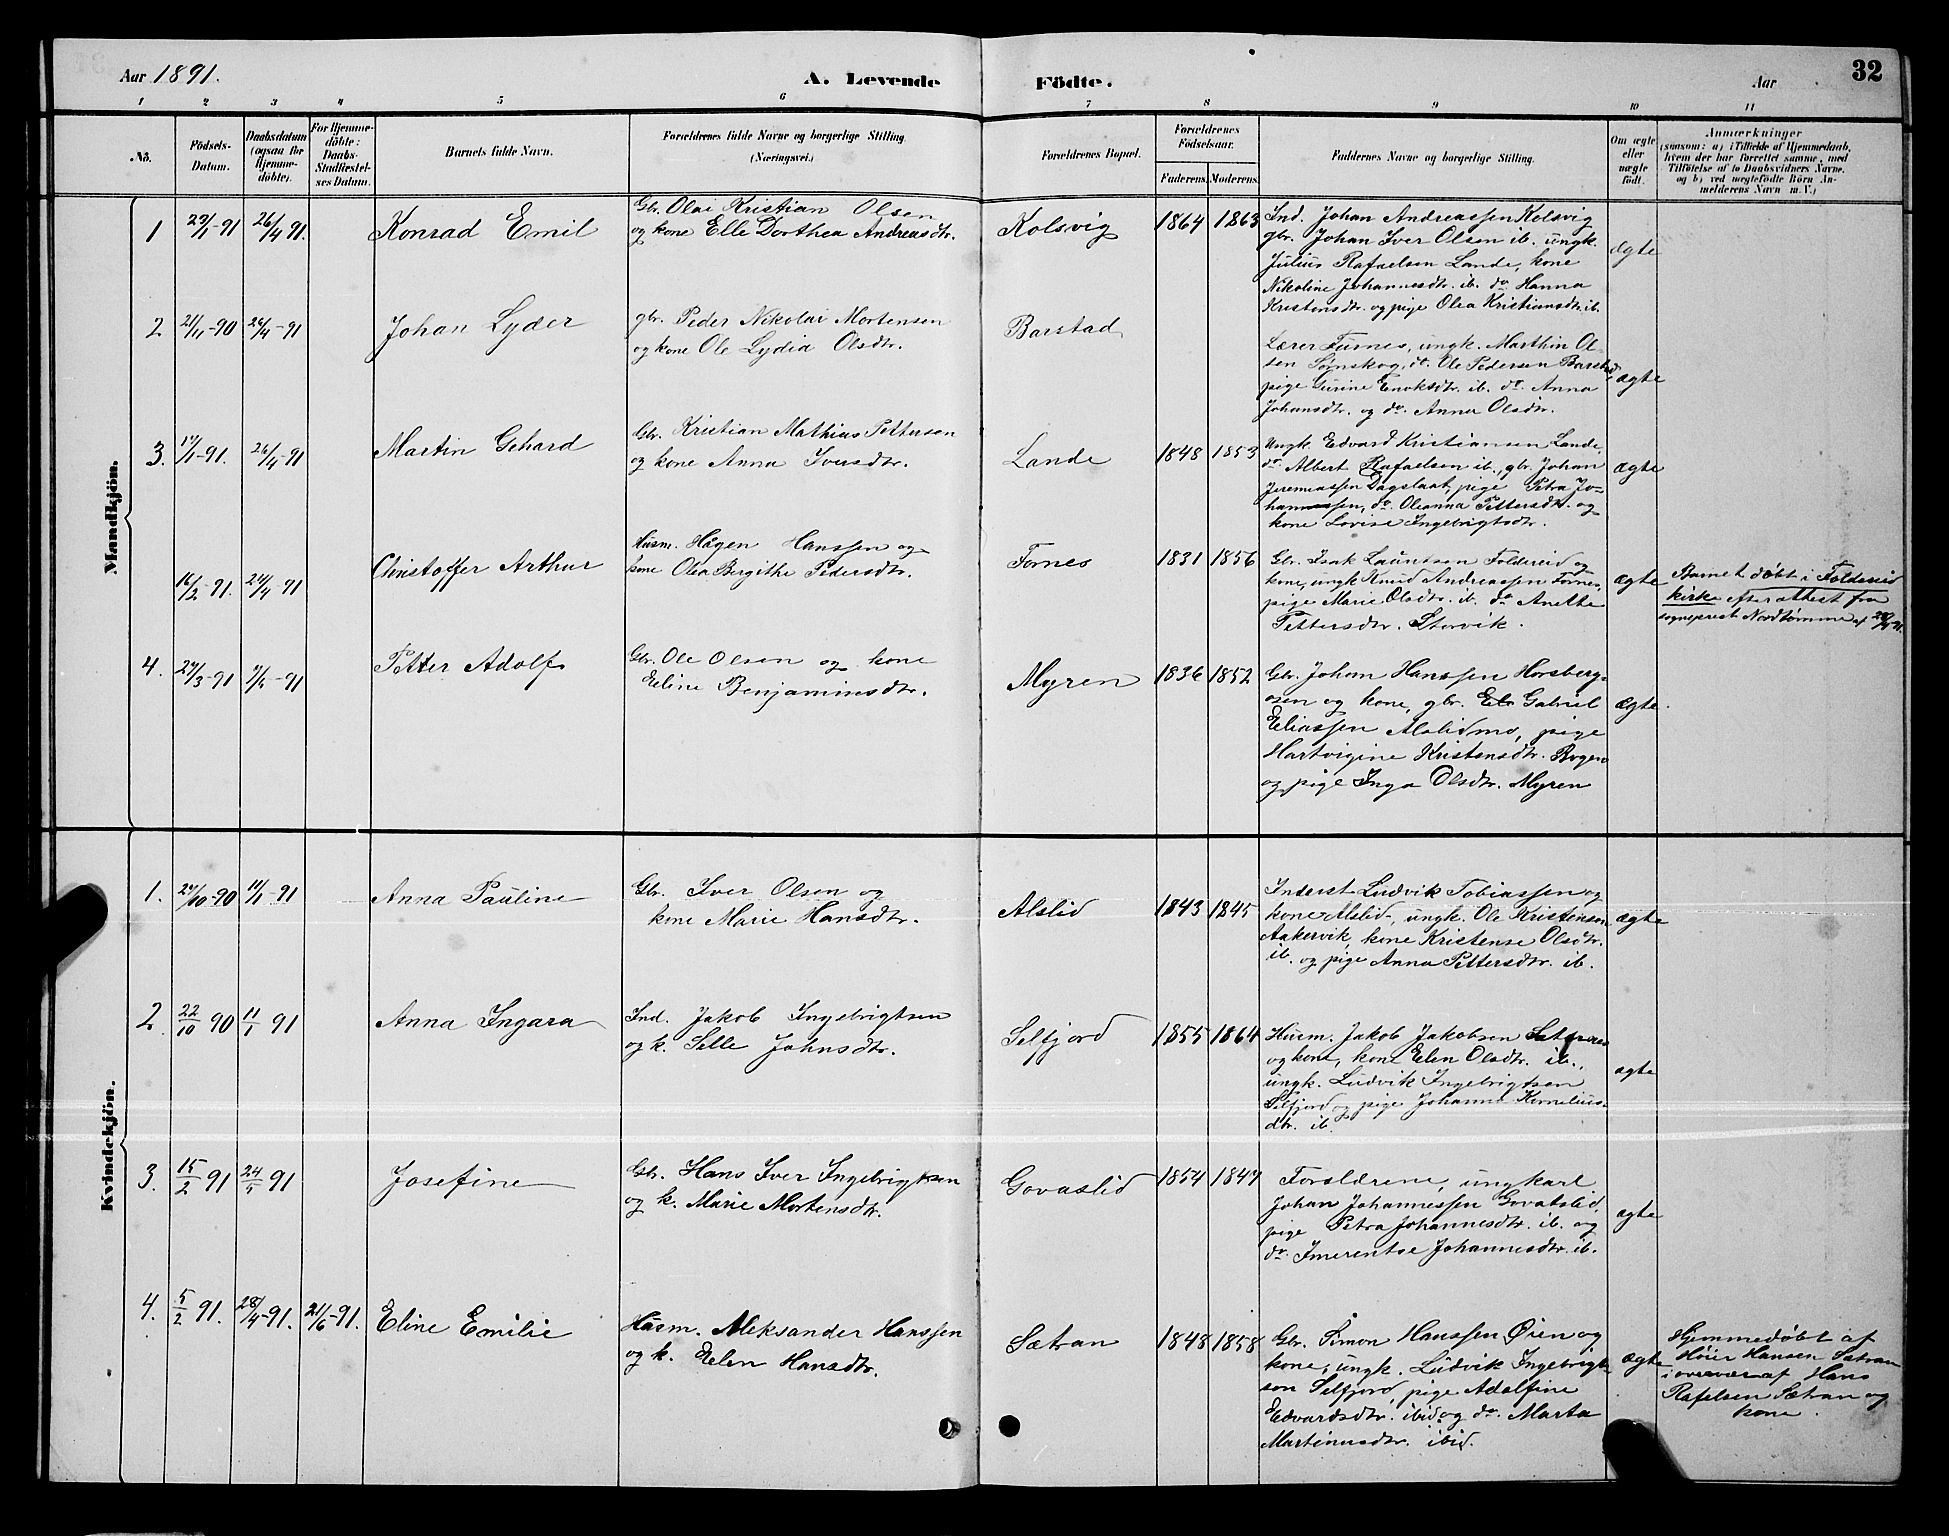 Aar 1891.
A. Levende
Födte.
Aar
32
1 2 3 4 5 6 7 8 9 10 11
No.
Födsels-
Datum.
Daabsdatum
(ogsaa for
Hjemme-
döbte).
For Hjemme-
döbte:
Daabs-
Stadfæstel-
ses Datum.
Barnets fulde Navn.
Forældrenes fulde Navne og borgerlige Stilling.
(Næringsvei.)
Forældrenes Bopæl.
Forældrenes
Födselsaar.
Faderens. Moderens.
Faddernes Navne og borgerlige Stilling.
Om ægte
eller
uægte
födt.
Anmærkninger
(saasom: a) i Tilfælde af Hjemmedaab,
hvem der har forrettet samme, med
Tilföielse af to Daabsvidners Navne.
og b) ved uægtefödte Börn An-
melderens Navn m. V.)
Mandkjön.
1
29/1-91
26/4 91.
Konrad Emil
Gbr. Olai Kristian Olsen
og kone Elle Dorthea Andreasdtr.
Kolsvig
1864 1863
Ind. Johan Andreassen Kolsvig
gbr. Johan Iver Olsen ib. ungk.
Julius Rafaelsen Lande, kone
Nikoline Johannesdtr. ib. do Hanna
Kristensdtr. og pige Olea Kristiansdtr. ib.
ægte
2
21/11-90
26/4-91
Johan Lyder
gbr. Peder Nikolai Mortensen
og kone Ole Lydia Olsdtr.
Barstad
Lærer Furnes, ungk. Marthin Ol
sen Sørnskog, do. Ole Pedersen Barstad,
pige Gurine Enoksdtr. ib. do. Anna
Johansdtr. og do. Anna Olsdtr.
ægte
3.
17/1-91.
26/4-91
Martin Gehard
Gbr. Kristian Mathius Pettersen
og kone Anna Iversdtr.
Lande
1848 1853
Ungk. Edvard Kristiansen Lande,
do Albert Rafaelsen ib., gbr. Johan
Jeremiassen Dagslaat, pige Petra Jo-
hannessen, do. Oleanna Pettersdtr. og
kone Lovise Ingebrigtsdtr.
ægte
16/2-91.
24/4-91
Christoffer Arthur
Husm. Hågen Hanssen og
kone Olea Bergithe Pedersdtr.
Fornes
1831 1856
Gbr. Isak Lauritsen Foldereid og
kone, ungk. Knud Andreassen Fornes,
pige Marie Olsdtr. ib. do Anette
Pettersdtr. Storvik.
ægte
Barnet døbt i Foldereid
kirke efter attest fra
sogneprest Nordtømme af
4.
24/3-91
Petter Adolf
Gbr. Ole Olsen og kone
Eeline Benjaminsdtr.
Myren
1836 1852
Gbr. Johan Hanssen Horsberg-
osen og kone, gbr. Gabriel
Eeliassen Alslidmo, pige
Hartvigine Kristensdtr. Bogen
og pige Inga Olsdtr. Myren
ægte.
Kvindekjön.
1.
29/10-90
11/1-91
Anna Pauline
Gbr. Iver Olsen og
kone Marie Hansdtr.
Alslid
1843 1845
Inderst Ludvik Tobiassen og
kone Alslid, ungk. Ole Kristensen
Aakervik, kone Kristense Olsdtr.
ib. og pige Anna Pettersdtr. ib.
ægte
2.
22/10 90
11/1 91
Anna Ingara
Ind. Jakob Ingebrigtsen
og k. Selle Johnsdtr.
Selfjord
1855 1864
Husm. Jakob Jakobsen
og kone, kone Eelen Olsdtr. ib.,
ungk. Ludvik Ingebrigtsen
Selfjord og pige Johanna Kornelius-
dtr. ib.
ægte
3.
15/2 91
24/5 91
Josefine
Gbr. Hans Iver Ingebrigtsen
og k. Marie Mortensdtr.
Govaslid
1854 1847
Forældrene, ungkarl
Johan Johannessen Govatslid,
pige Petra Johannesdtr. ib. og
do. Imerentse Johannesdtr. ib.
ægte
4.
5/2 91.
28/4-91.
21/6-91.
Eline Emilie
Husm. Aleksander Hanssen
og k. Eelen Hansdtr.
Sætran
1848 1858
Gbr. Simon Hanssen Øien og
kone, ungk. Ludvik Ingebrigt
sen Selfjord, pige Adolfine
Edvardsdtr. ibid. og do. Marta
Martinusdtr. ibid.
ægte
Hjemmedøbt af
Høier Hansen Sætran
i overvær af Hans
Rafelsen Sætran og
kone.